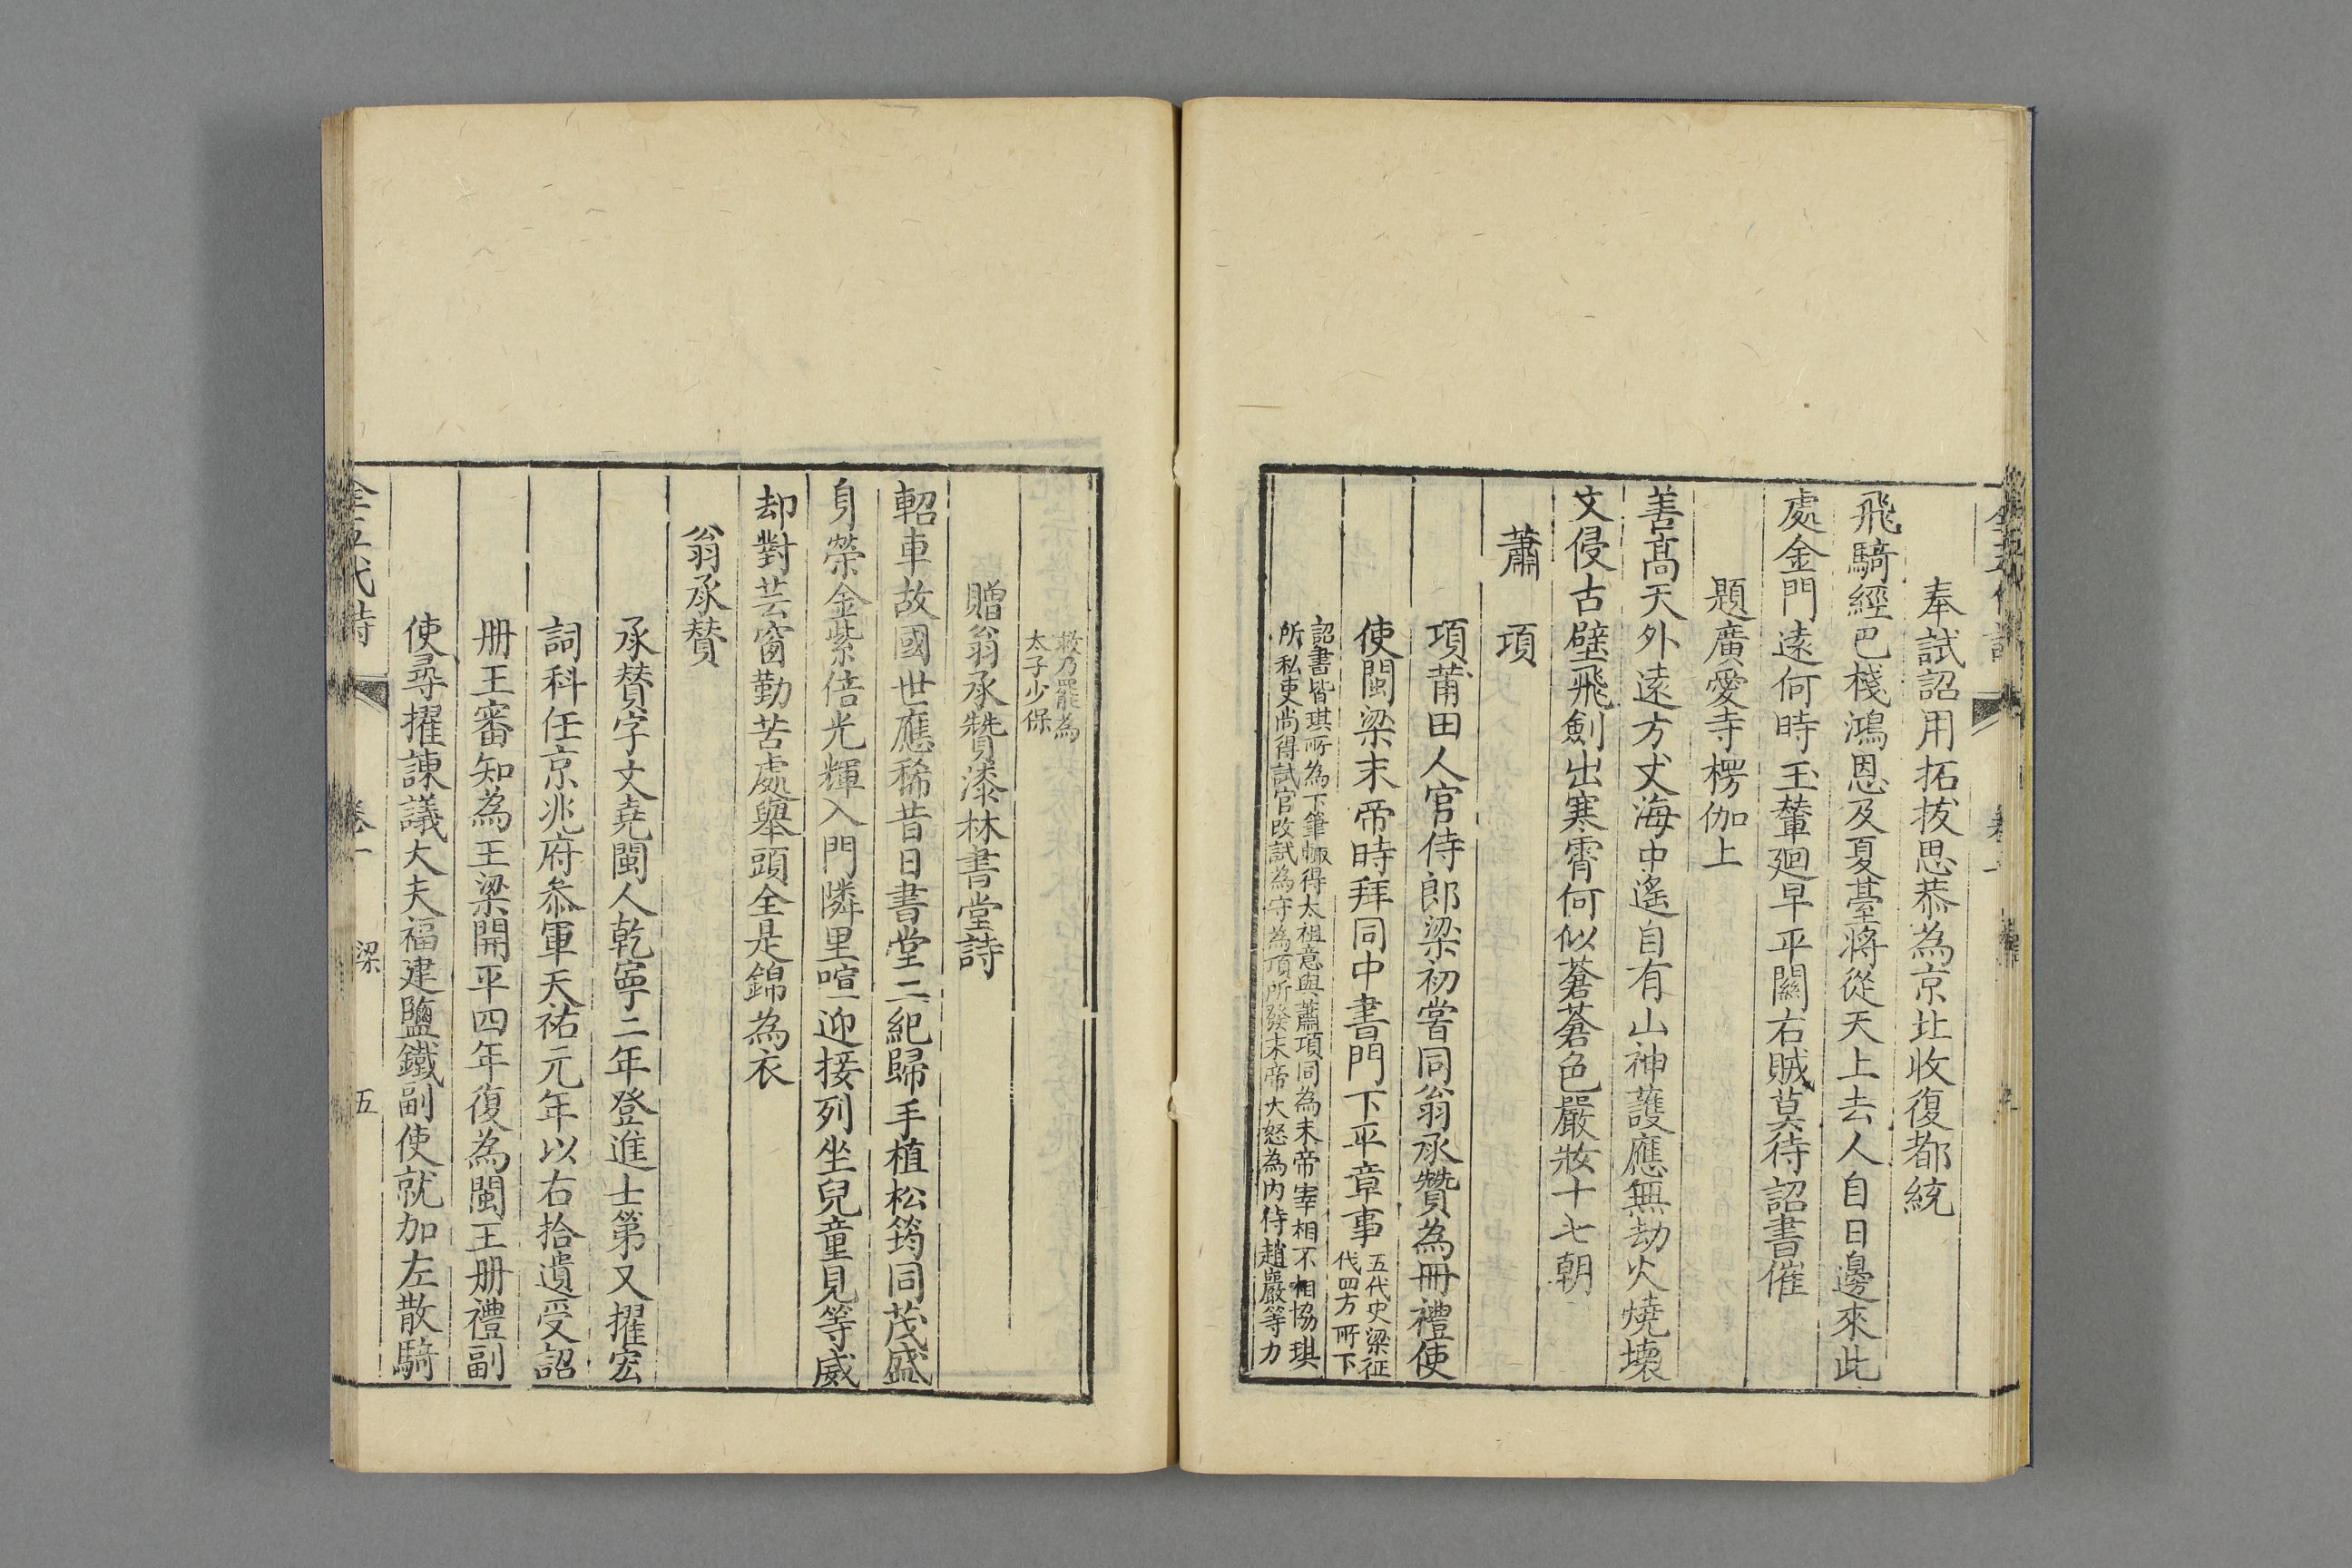 奉試詔用拓拔思恭為京北收復都統
飛騎經巴棧鴻恩及夏臺將從天上去人自日邊來此
處金門遠何時玉輦廻早平關右賊莫待詔書催
題廣愛寺楞伽上
善高天外遠方丈海中遙自有山神護應無劫火燒壞
文侵古壁飛劍出寒霄何似蒼蒼色嚴妝十七朝
蕭項
項莆田人官侍郎梁初嘗同翁承贊為冊禮使
使閩梁末帝時拜同中書門下平章事
五代史梁征
代四方所下
詔書皆琪所為下筆輙得太祖意與蕭項同為末帝宰相不相協琪
所私吏尚得試官改試為守為項所發末帝大怒為內侍趙巖等力
救乃罷為
太子少保
贈翁承贊漆林書堂詩
軺車故國世應稀昔日書堂二紀歸手植松筠同茂盛
身榮金紫倍光輝入門隣里喧迎接列坐兒童見等威
却對芸窗勤苦處舉頭全是錦為衣
翁承贊
承贊字文堯閩人乾寧二年登進士第又擢宏
詞科任京兆府叅軍天祐元年以右拾遺受詔
册王審知為王梁開平四年復為閩王册禮副
使尋擢諫議大夫福建鹽鐵副使就加左散騎
全五代詩 卷一 梁 五